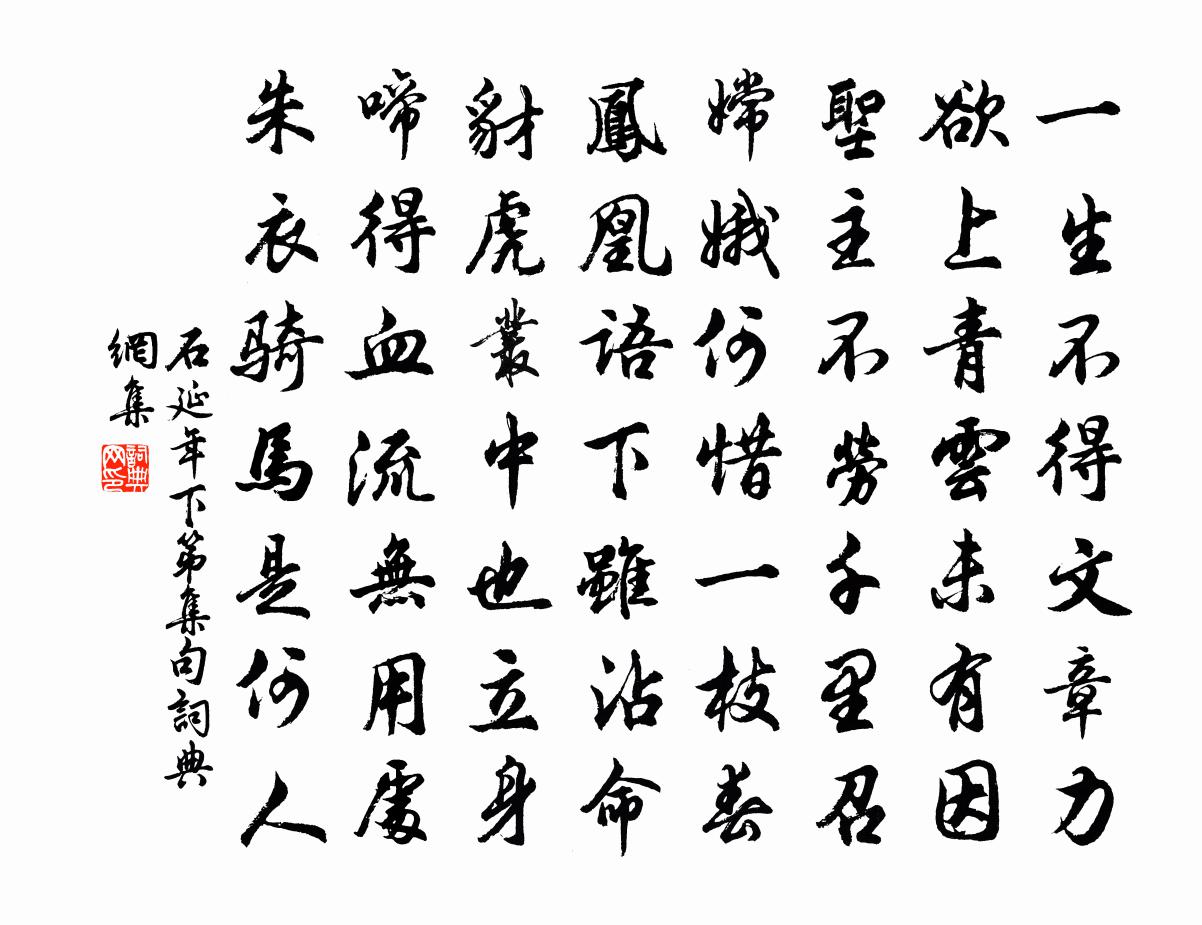 一生不得文章力
欲上青雲未有因
聖主不勞千里召
嫦娥何惜一枝春
鳳凰語下雖沾命
豺虎叢中也立身
啼得血流無用處
朱衣騎馬是何人
石延年下第集句詞典
網集
詞典
网印